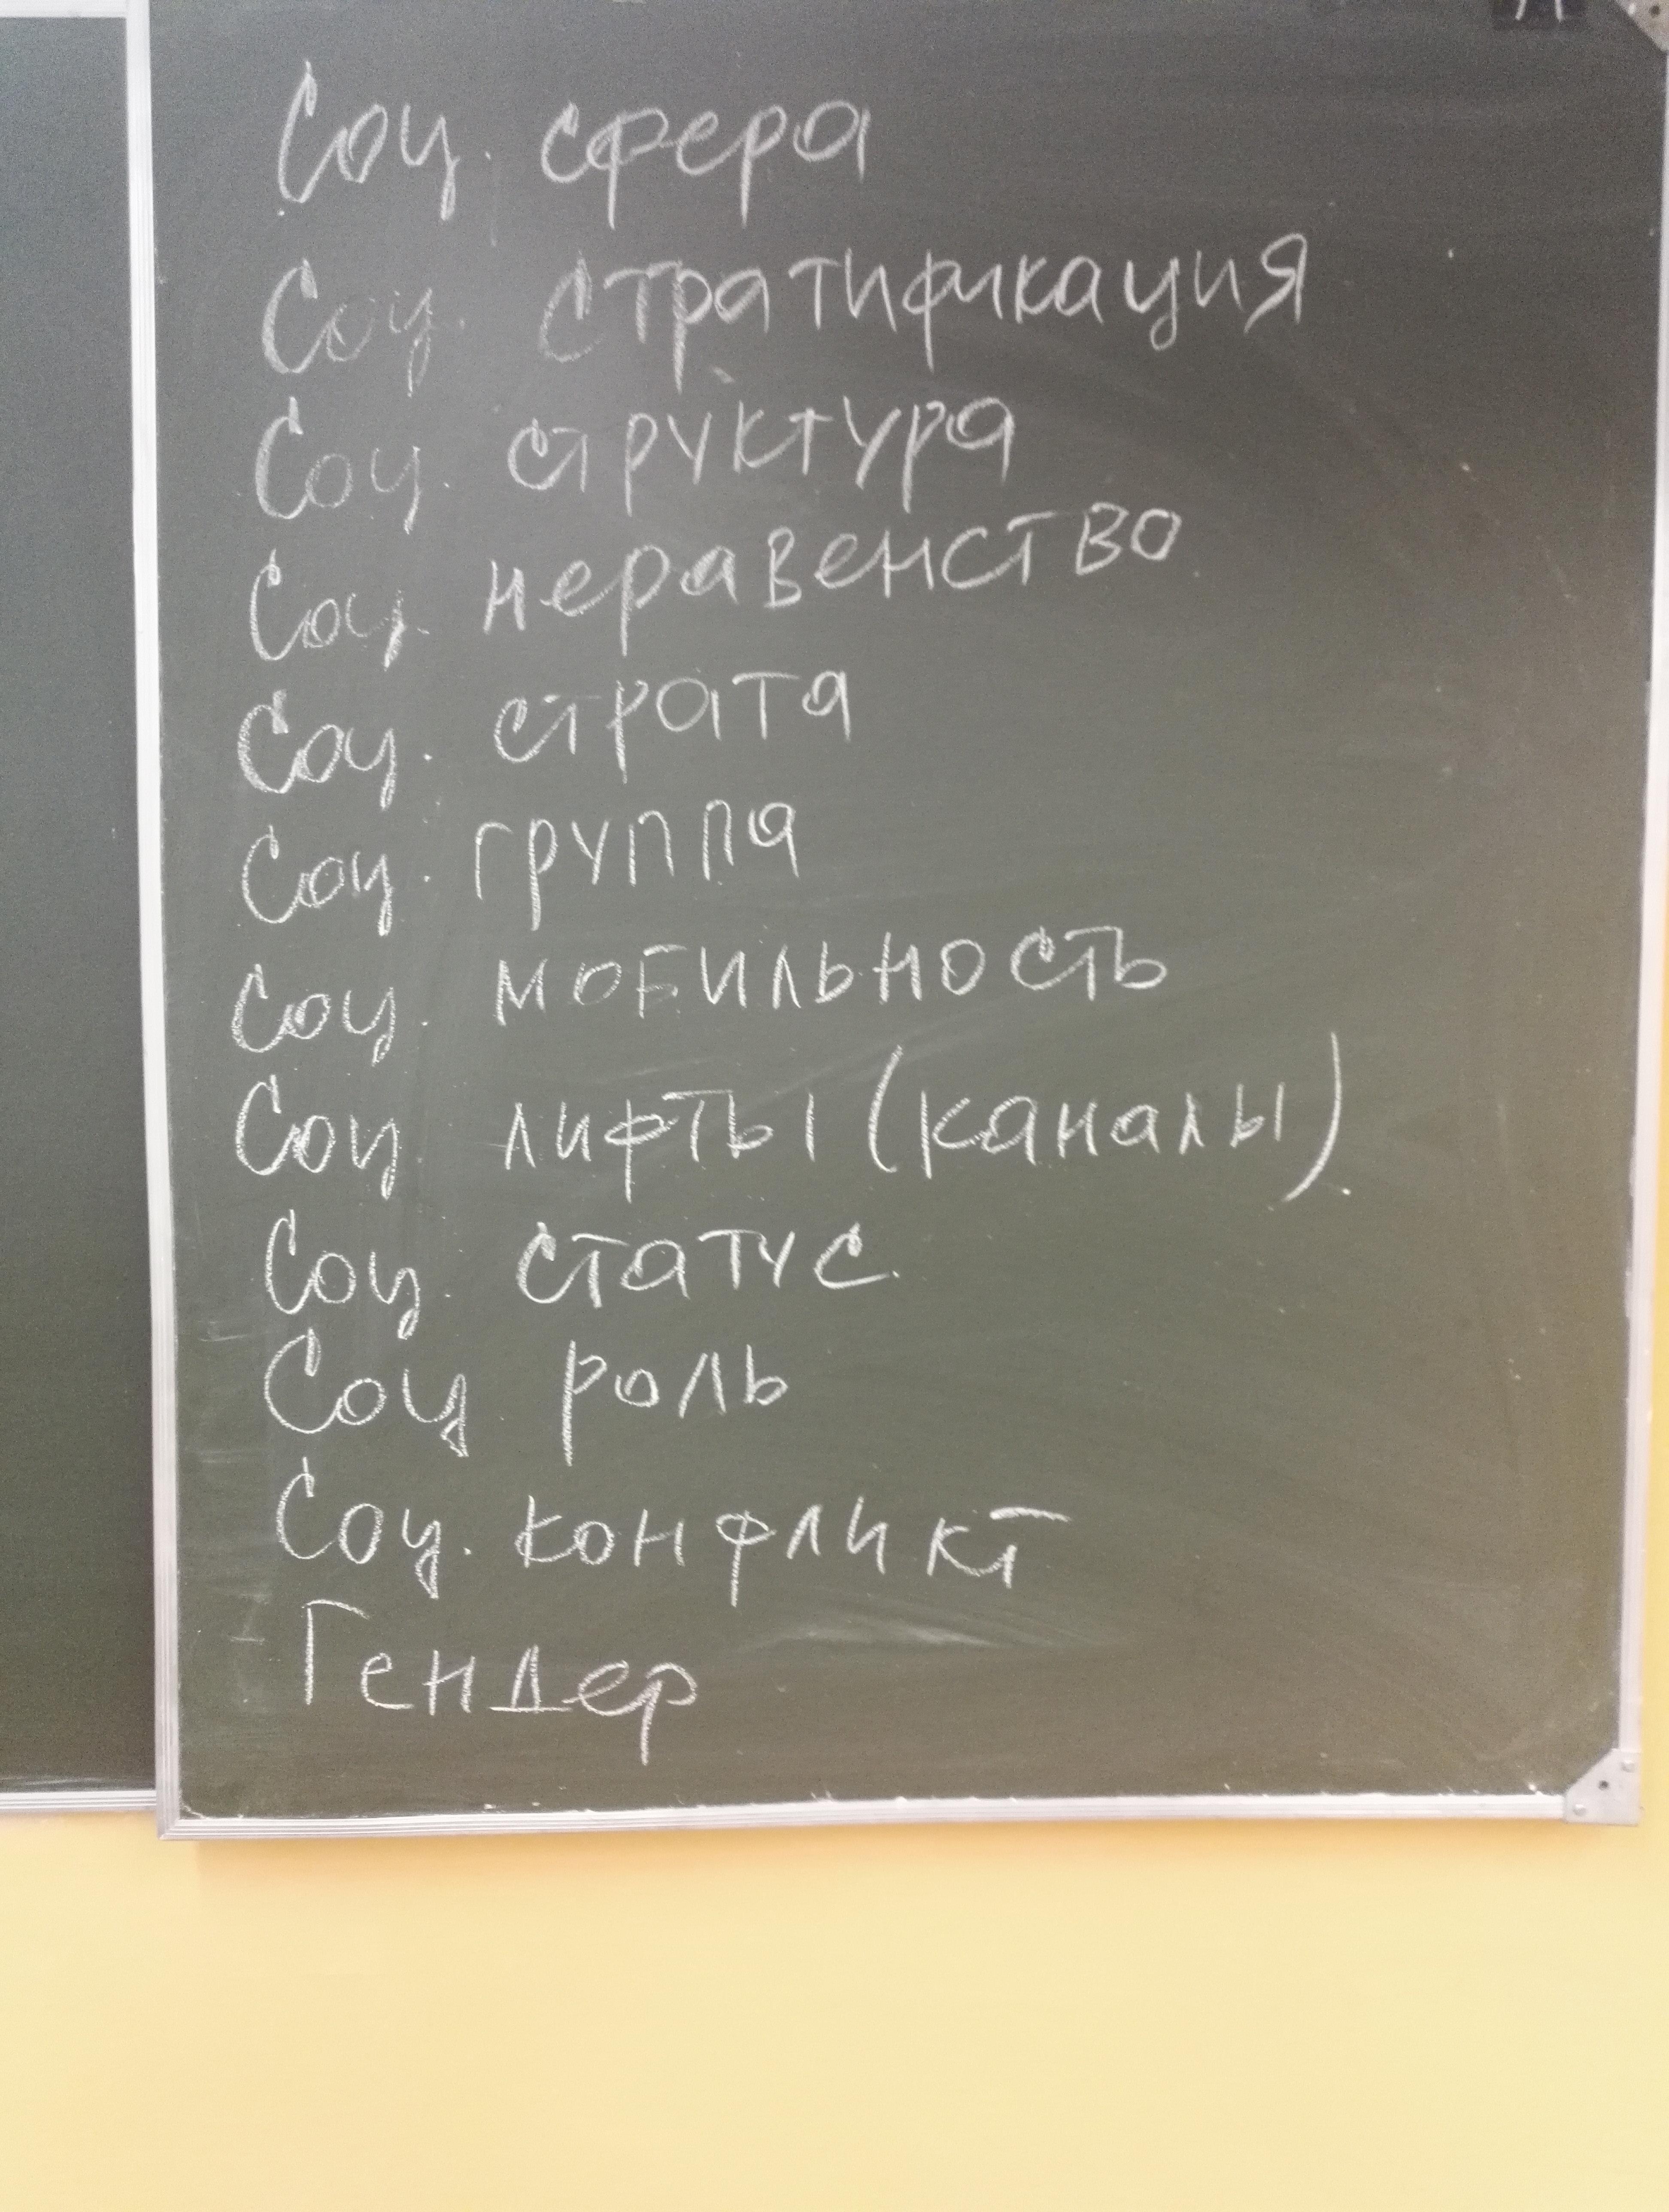 Соц. сфера
Соц. стратификация
Соц. структура
Соц. неравенство
Соц. страта
Соц. группа
Соц. мобильность
Соц лифты (каналы)
Соц. статус
Соц роль
Соц. конфликт
Гендер